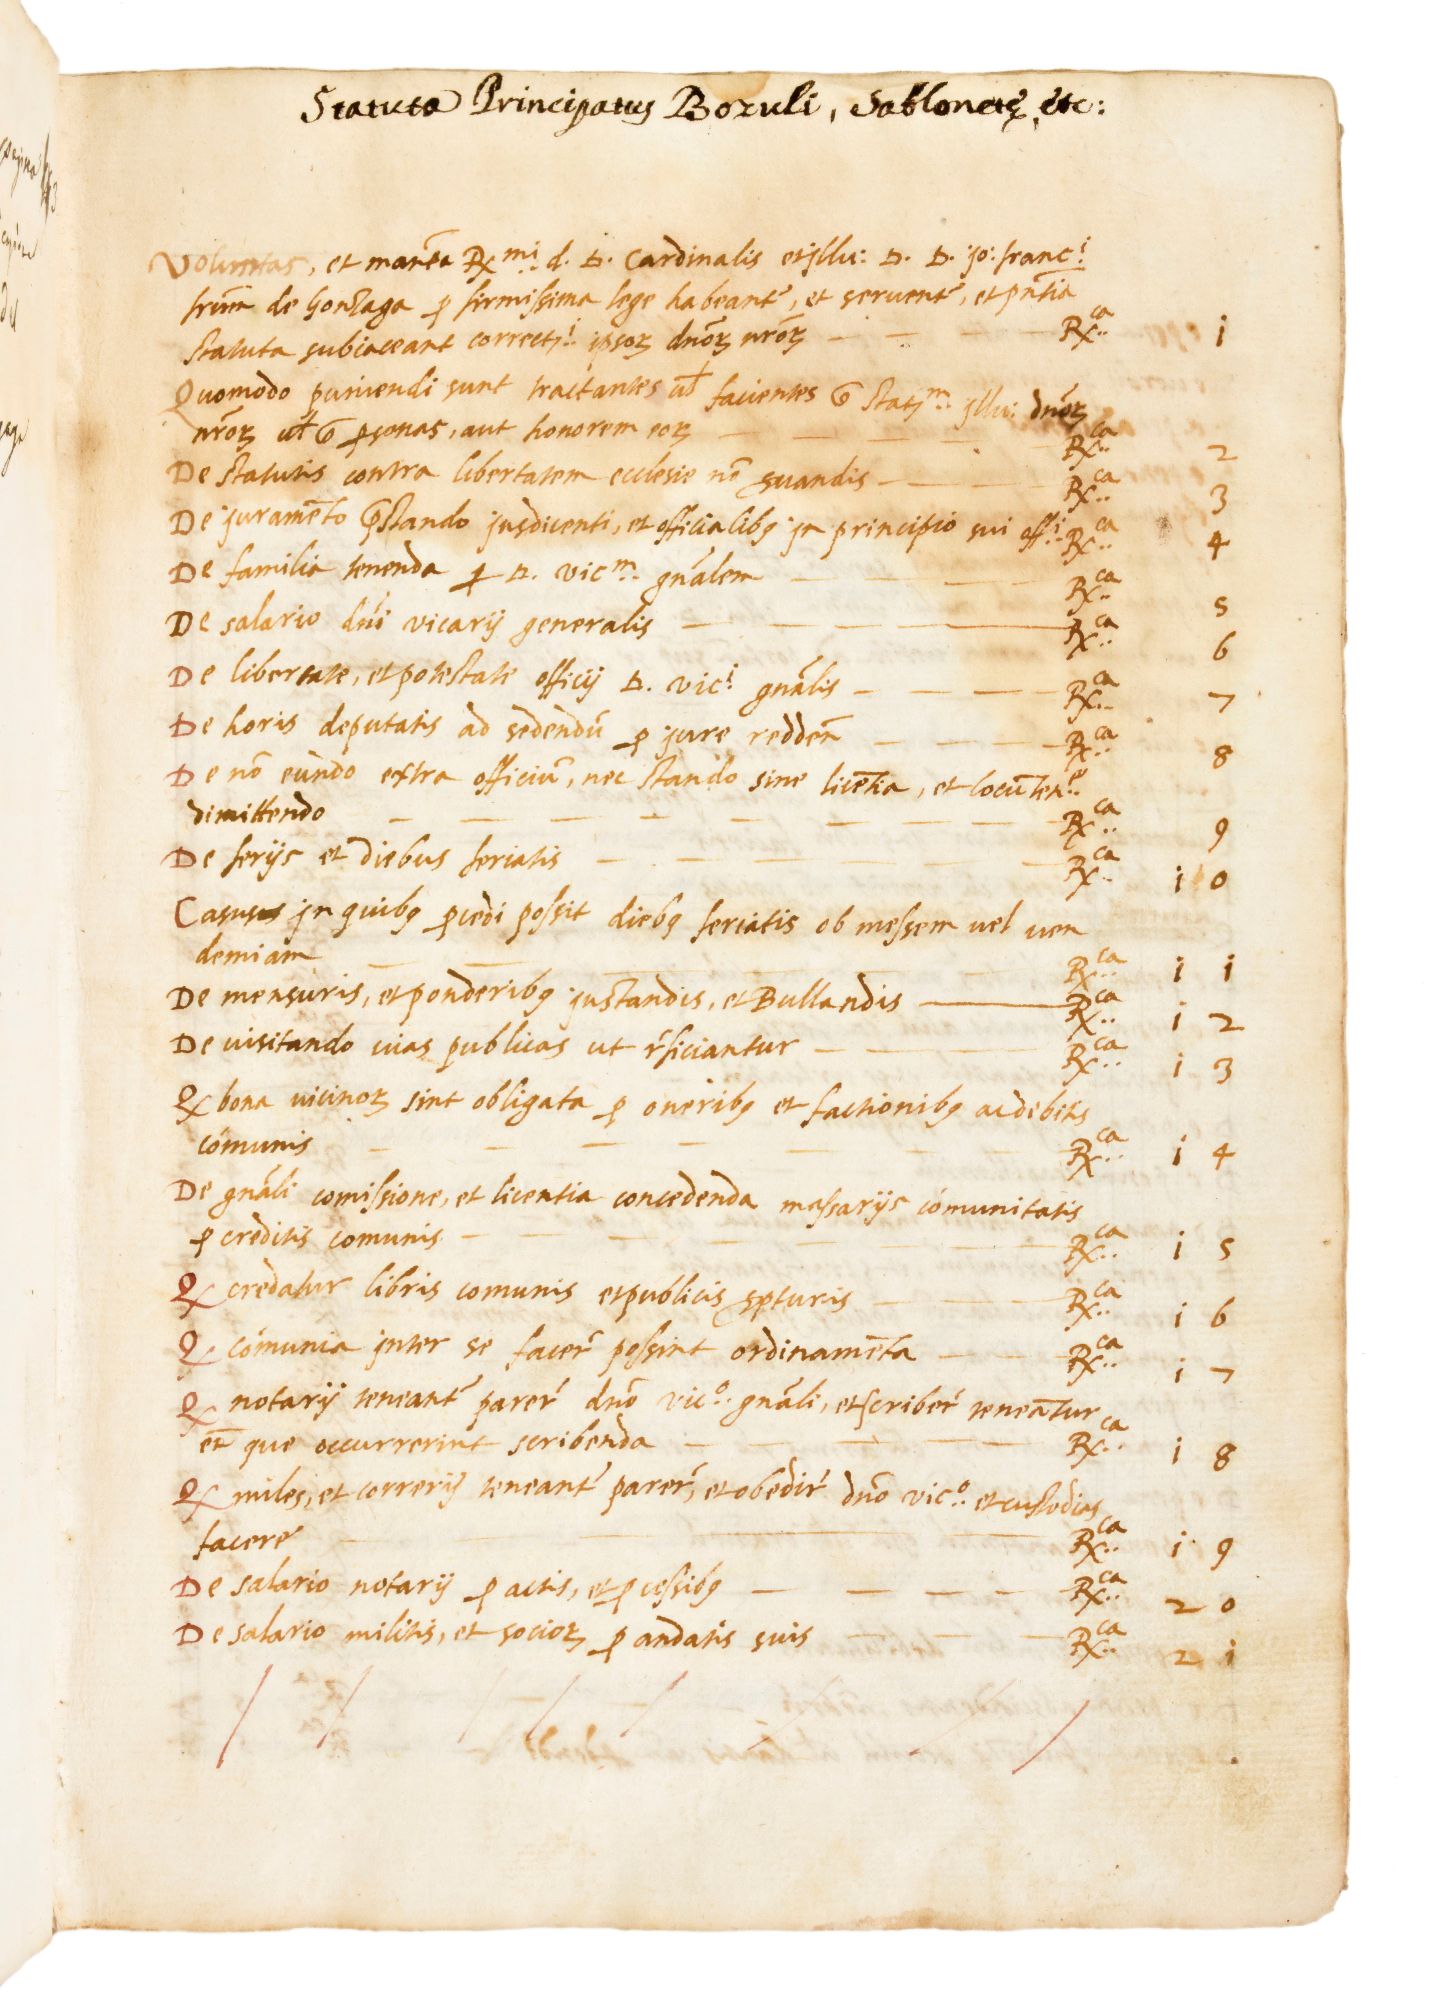 Statuta Principatus Bozuli, Sablonetę, etc:
Voluntas, et manta Rmi. d. D. Cardinalis et jllu: D. D. jo: franci
frum de Gonzaga p firmissima lege habeant, et servent, et pntia
statuta subiaceant correcti. ipsoꝝ dnoꝝ nroꝝ Rca.. 1
Quomodo puniendi sunt tractantes ul facientes statm.. jllu: dnoꝝ
nroꝝ ul psonas, aut honorem eoꝝ Rca.. 2
De statutis contra libertatem ecclesie no suandis Rca.. 3
De juramēto pstando jusdicenti, et officialibꝰ jn principio sui offi.. Rca.. 4
De familia tenenda p D. vicm.. gnalem Rca.. 5
De salario dni vicarij generalis Rca.. 6
De libertate, et potestate officij D. vici. gnalis Rca.. 7
De horis deputatis ad sedendū p jure redden Rca.. 8
De nō eundo extra officiū, nec stando sine licētia, et locūtene..
dimittendo Rca.. 9
De ferijs et diebus feriatis Rca.. i0
Casus jn quibꝰ pcedi possit diebꝰ feriatis ob messem vel ven
demiam Rca.. ii
De mensuris, et ponderibꝰ justandis, et Bullandis Rca.. i2
De visitando vias publicas ut rficiantur Rca.. i3
Ꝙ bona vicinoꝝ sint obligata p oneribꝰ et factionibꝰ ac debitis
cōmunis Rca.. i4
De gnali comissione, et licentia concedenda massarijs cōmunitatis
p creditis comunis Rca.. i5
Ꝙ credatur libris comunis et publicis spturis Rca.. i6
Ꝙ cōmunia jnter se facer possint ordinamēta Rca.. i7
Ꝙ notarij teneant parer dno vico.. gnali, et scriber teneātur
et que occurrerint scribenda Rca.. i8
Ꝙ miles, et correrij teneant parer, et obedir dno vico.. et custodias
facere Rca.. i9
De salario notarij p actis, et pcessibꝰ Rca.. 20
De salario militis, et socioꝝ p andatis suis Rca.. 2i